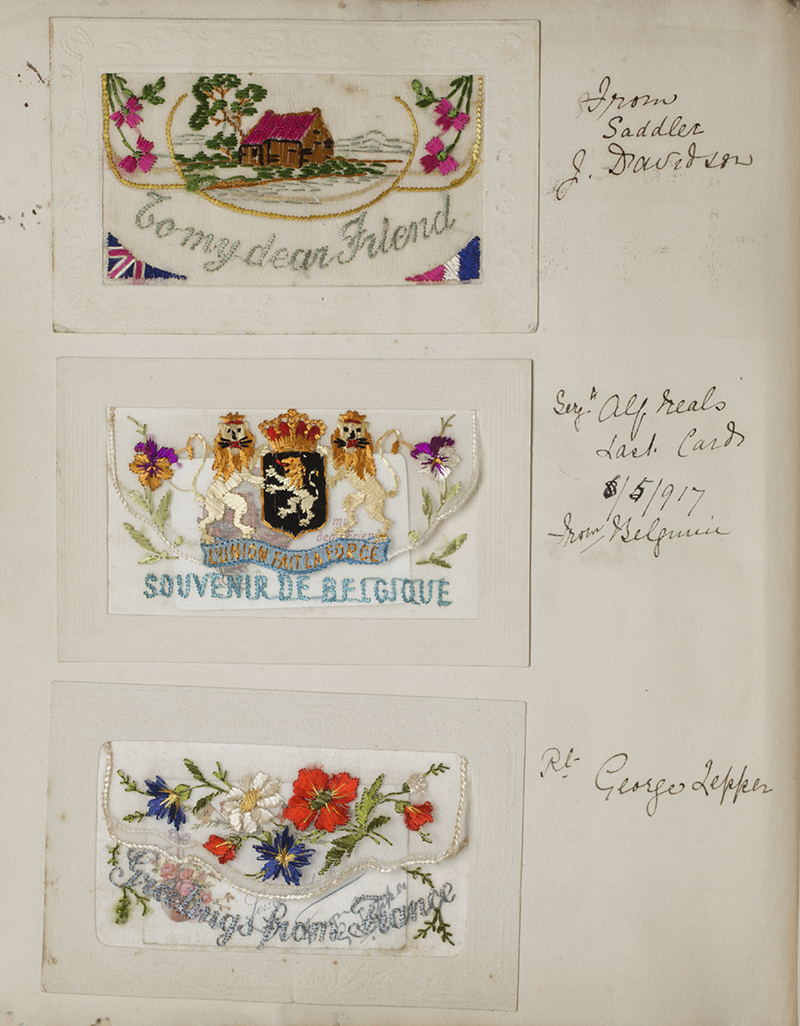 To my dear Friend
From
Saddler
J. Davidson
my
dear Friend
L'UNION FAIT LA FORCE
SOUVENIR DE BELGIQUE
Sergt Alf Neals
Last Card
8/5/917
from Belgium
Greetings from France
Pt George Lepper